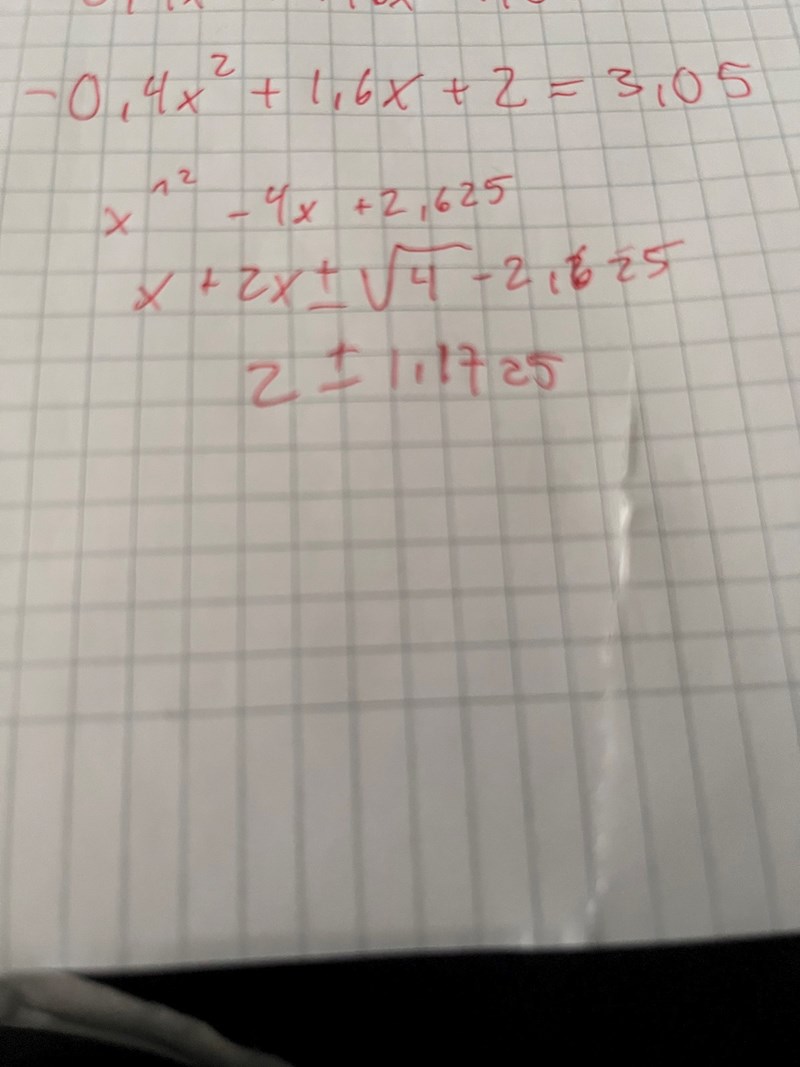 -0,4x² + 1,6x + 2 = 3,05
x^² - 4x + 2,625
x + 2x ± √4 - 2,625
2 ± 1,1725